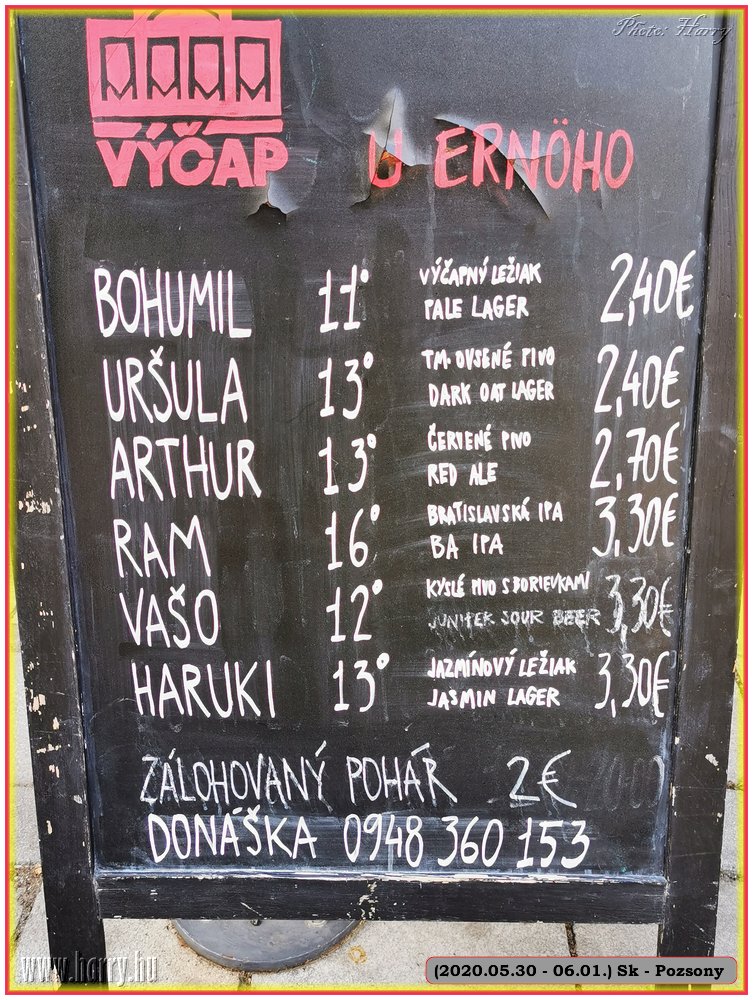 Photo: Harry
VÝČAP U ERNÖHO
BOHUMIL 11° VÝČAPNÝ LEŽIAK 2,40€
PALE LAGER
URŠULA 13° TM. OVSENÉ PIVO 2,40€
DARK OAT LAGER
ARTHUR 13° ČERVENÉ PIVO 2,70€
RED ALE
RAM 16° BRATISLAVSKÁ IPA 3,30€
BA IPA
VAŠO 12° KYSLÉ PIVO S BORIEVKAMI 3,30€
JUNIPER SOUR BEER
HARUKI 13° JAZMÍNOVÝ LEŽIAK 3,30€
JASMIN LAGER
ZÁLOHOVANÝ POHÁR 2€
DONÁŠKA 0948 360 153
www.harry.hu
(2020.05.30 - 06.01.) Sk - Pozsony